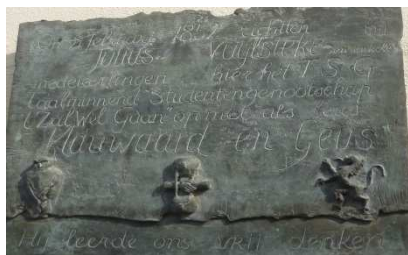 Op februari 1852 stichtten
JULIUS VUYLSTEKE
medeleerlingen hier het T S G
Taalminnend Studentengenootschap
't Zal Wel Gaan op met als
Klauwaard en Geus"
Hij leerde ons vrij denken